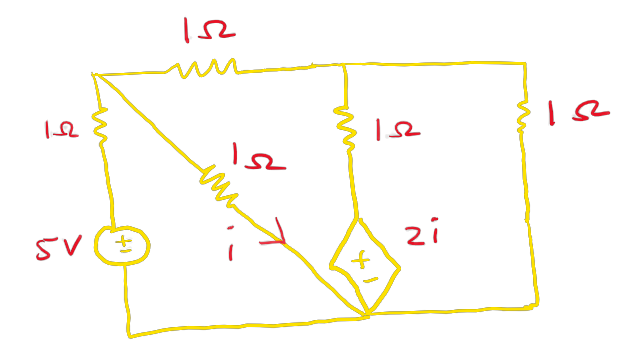 1Ω
1Ω
1Ω
1Ω
1Ω
5V
+
-
i
2i
+
-